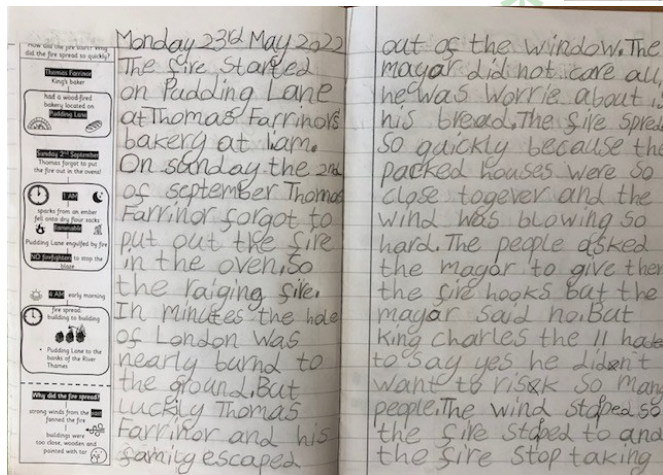 How did the fire start? Why
did the fire spread so quickly?
Thomas Farrinor
King's baker
had a wood-fired
bakery located on
Pudding Lane
Sunday 2nd September
Thomas forgot to put
the fire out in the ovens!
1 AM
sparks from an ember
fell onto dry flour sacks
flammable
Pudding Lane engulfed by fire
NO firefighters to stop the
blaze
4 AM early morning
fire spread
building to building
Pudding Lane to the
banks of the River
Thames
Why did the fire spread?
strong winds from the east
fanned the fire
buildings were
too close, wooden and
painted with tar
Monday 23rd May 2022
The fire Started
on Pudding Lane
at Thomas Farrinors
bakery at 1am.
On sunday the 2nd
of september Thomas
Farrinor forgot to
put out the fire
in the oven. So
the raiging fire.
In minutes the hole
of London was
nearly burnd to
the ground. But
Luckily Thomas
Farrinor and his
family escaped
out of the window. The
mayor did not care all
he was worrie about is
his bread. The fire spred
So quickly because the
packed houses were so
close togever and the
wind was blowing so
hard. The people asked
the mayor to give them
the fire hooks but the
mayor said no. But
king charles the II hade
to say yes he diden't
want to risk so many
people. The wind stoped so
the fire stoped to and
the fire stop taking